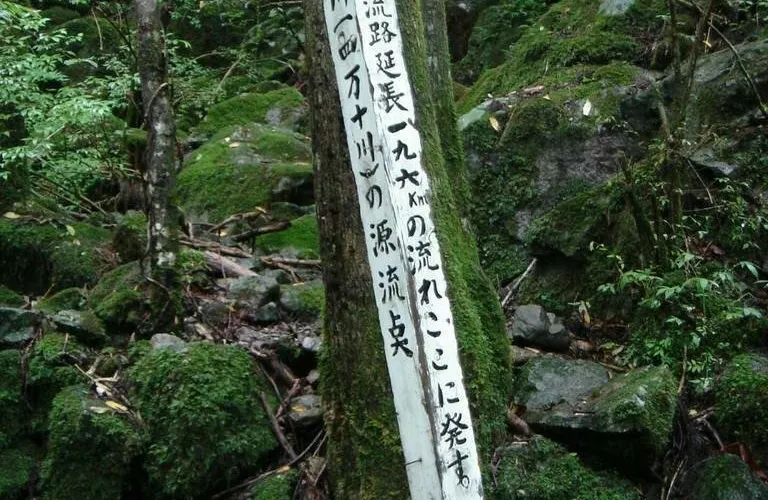 流路延長一九六Kmの流れここに発す
一四万十川の源流点